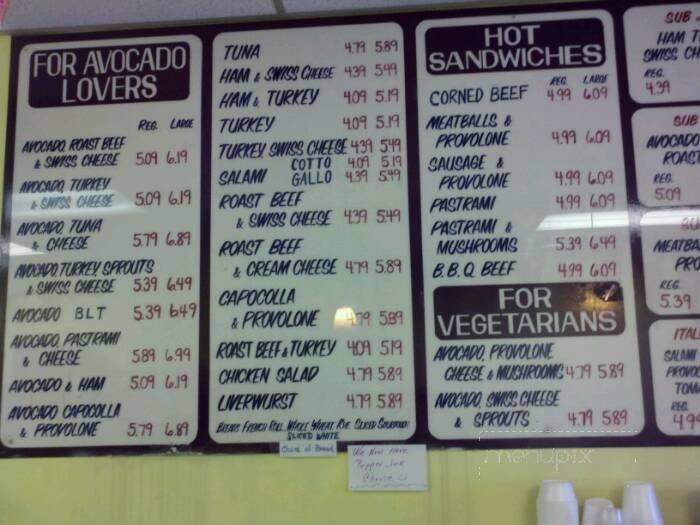 FOR AVOCADO
LOVERS
REG. LARGE
AVOCADO, ROAST BEEF
& SWISS CHEESE 5.09 6.19
AVOCADO, TURKEY
& SWISS CHEESE 5.09 6.19
AVOCADO, TUNA
& CHEESE 5.79 6.89
AVOCADO, TURKEY, SPROUTS
& SWISS CHEESE 5.39 6.49
AVOCADO BLT 5.39 6.49
AVOCADO, PASTRAMI
& CHEESE 5.89 6.99
AVOCADO & HAM 5.09 6.19
AVOCADO CAPOCOLLA
& PROVOLONE 5.79 6.89
TUNA 4.79 5.89
HAM & SWISS CHEESE 4.39 5.49
HAM & TURKEY 4.09 5.19
TURKEY 4.09 5.19
TURKEY, SWISS CHEESE 4.39 5.49
SALAMI COTTO 4.09 5.19
GALLO 4.39 5.49
ROAST BEEF
& SWISS CHEESE 4.39 5.49
ROAST BEEF
& CREAM CHEESE 4.79 5.89
CAPOCOLLA
& PROVOLONE 4.79 5.89
ROAST BEEF & TURKEY 4.09 5.19
CHICKEN SALAD 4.79 5.89
LIVERWURST 4.79 5.89
BREADS: FRENCH ROLL, WHOLE WHEAT, RYE, SLICED SOURDOUGH
SLICED WHITE
Choice of Bread
We Now Have
Pepper Jack
Cheese
HOT
SANDWICHES
REG. LARGE
CORNED BEEF 4.99 6.09
MEATBALLS &
PROVOLONE 4.99 6.09
SAUSAGE &
PROVOLONE 4.99 6.09
PASTRAMI 4.99 6.09
PASTRAMI &
MUSHROOMS 5.39 6.49
B.B.Q. BEEF 4.99 6.09
FOR
VEGETARIANS
AVOCADO, PROVOLONE
CHEESE & MUSHROOMS 4.79 5.89
AVOCADO, SWISS CHEESE
& SPROUTS 4.79 5.89
SUB
HAM
SWISS
REG.
4.39
SUB
AVOCADO
ROAST
REG.
5.09
MEATBALL
PRO
REG.
5.39
ITAL
SALAMI
PROVO
REG.
4.99
menupix